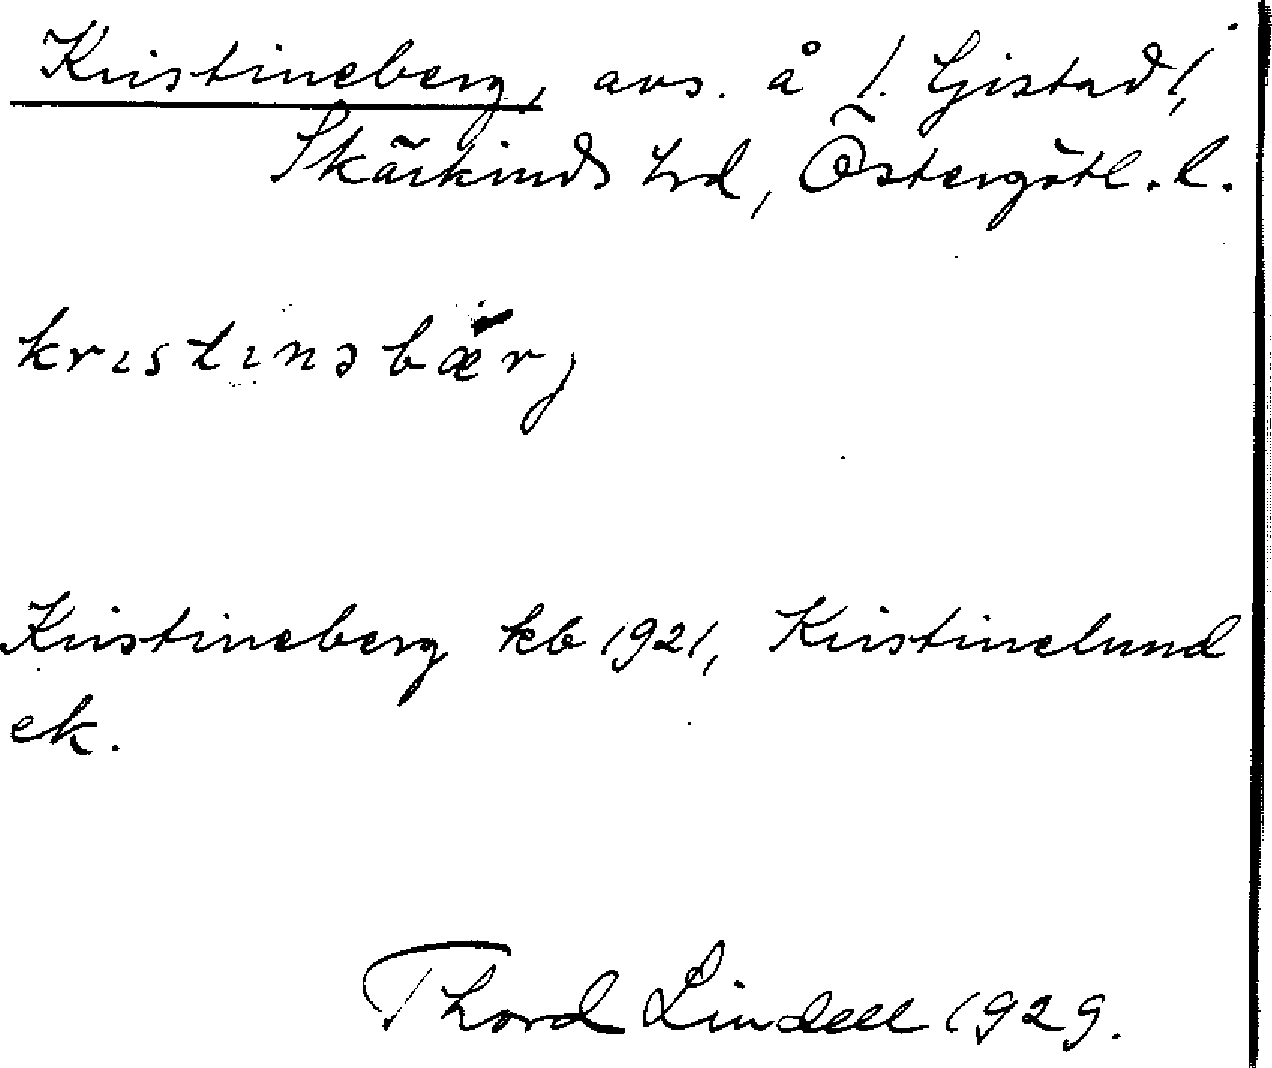 Kristineberg, avs. å 1. Gistad 1,
Skärkinds hd, Östergötl. l.
kristinəbærj
Kristineberg kb 1921, Kristinelund
ek.
Thord Lindell 1929.